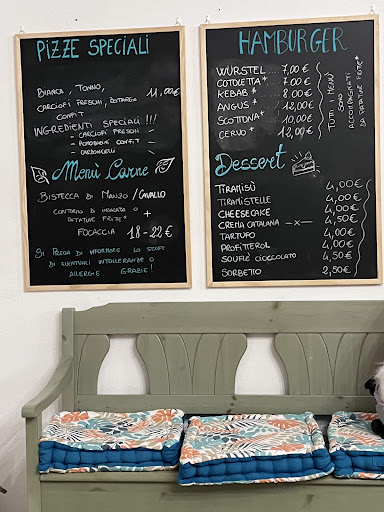 PIZZE SPECIALI
BIANCA, TONNO,
CARCIOFI FRESCHI, BOTTARGA 11,00€
CONFIT
INGREDIENTI SPECIALI !!!
- CARCIOFI FRESCHI
- POMODORINI CONFIT
- CARDONCELLI
Menù Carne
BISTECCA DI MANZO / CAVALLO
CONTORNO DI INSALATA O
PATATINE FRITTE* +
FOCACCIA 18-22€
SI PREGA DI INFORMARE LO STAFF
DI EVENTUALI INTOLLERANZE O
ALLERGIE GRAZIE!
HAMBURGER
WÜRSTEL 7,00€
COTOLETTA* 7,00€
KEBAB* 8,00€
ANGUS* 12,00€
SCOTTONA* 10,00€
CERVO* 12,00€
TUTTI I MENÙ
SONO
ACCOMPAGNATI
DA PATATINE FRITTE*
Dessert
TIRAMISÙ 4,00€
TIRAMISTELLE 4,00€
CHEESECAKE 4,00€
CREMA CATALANA -x- 4,50€
TARTUFO 4,00€
PROFITTEROL 4,00€
SOUFLÈ CIOCCOLATO 4,50€
SORBETTO 2,50€